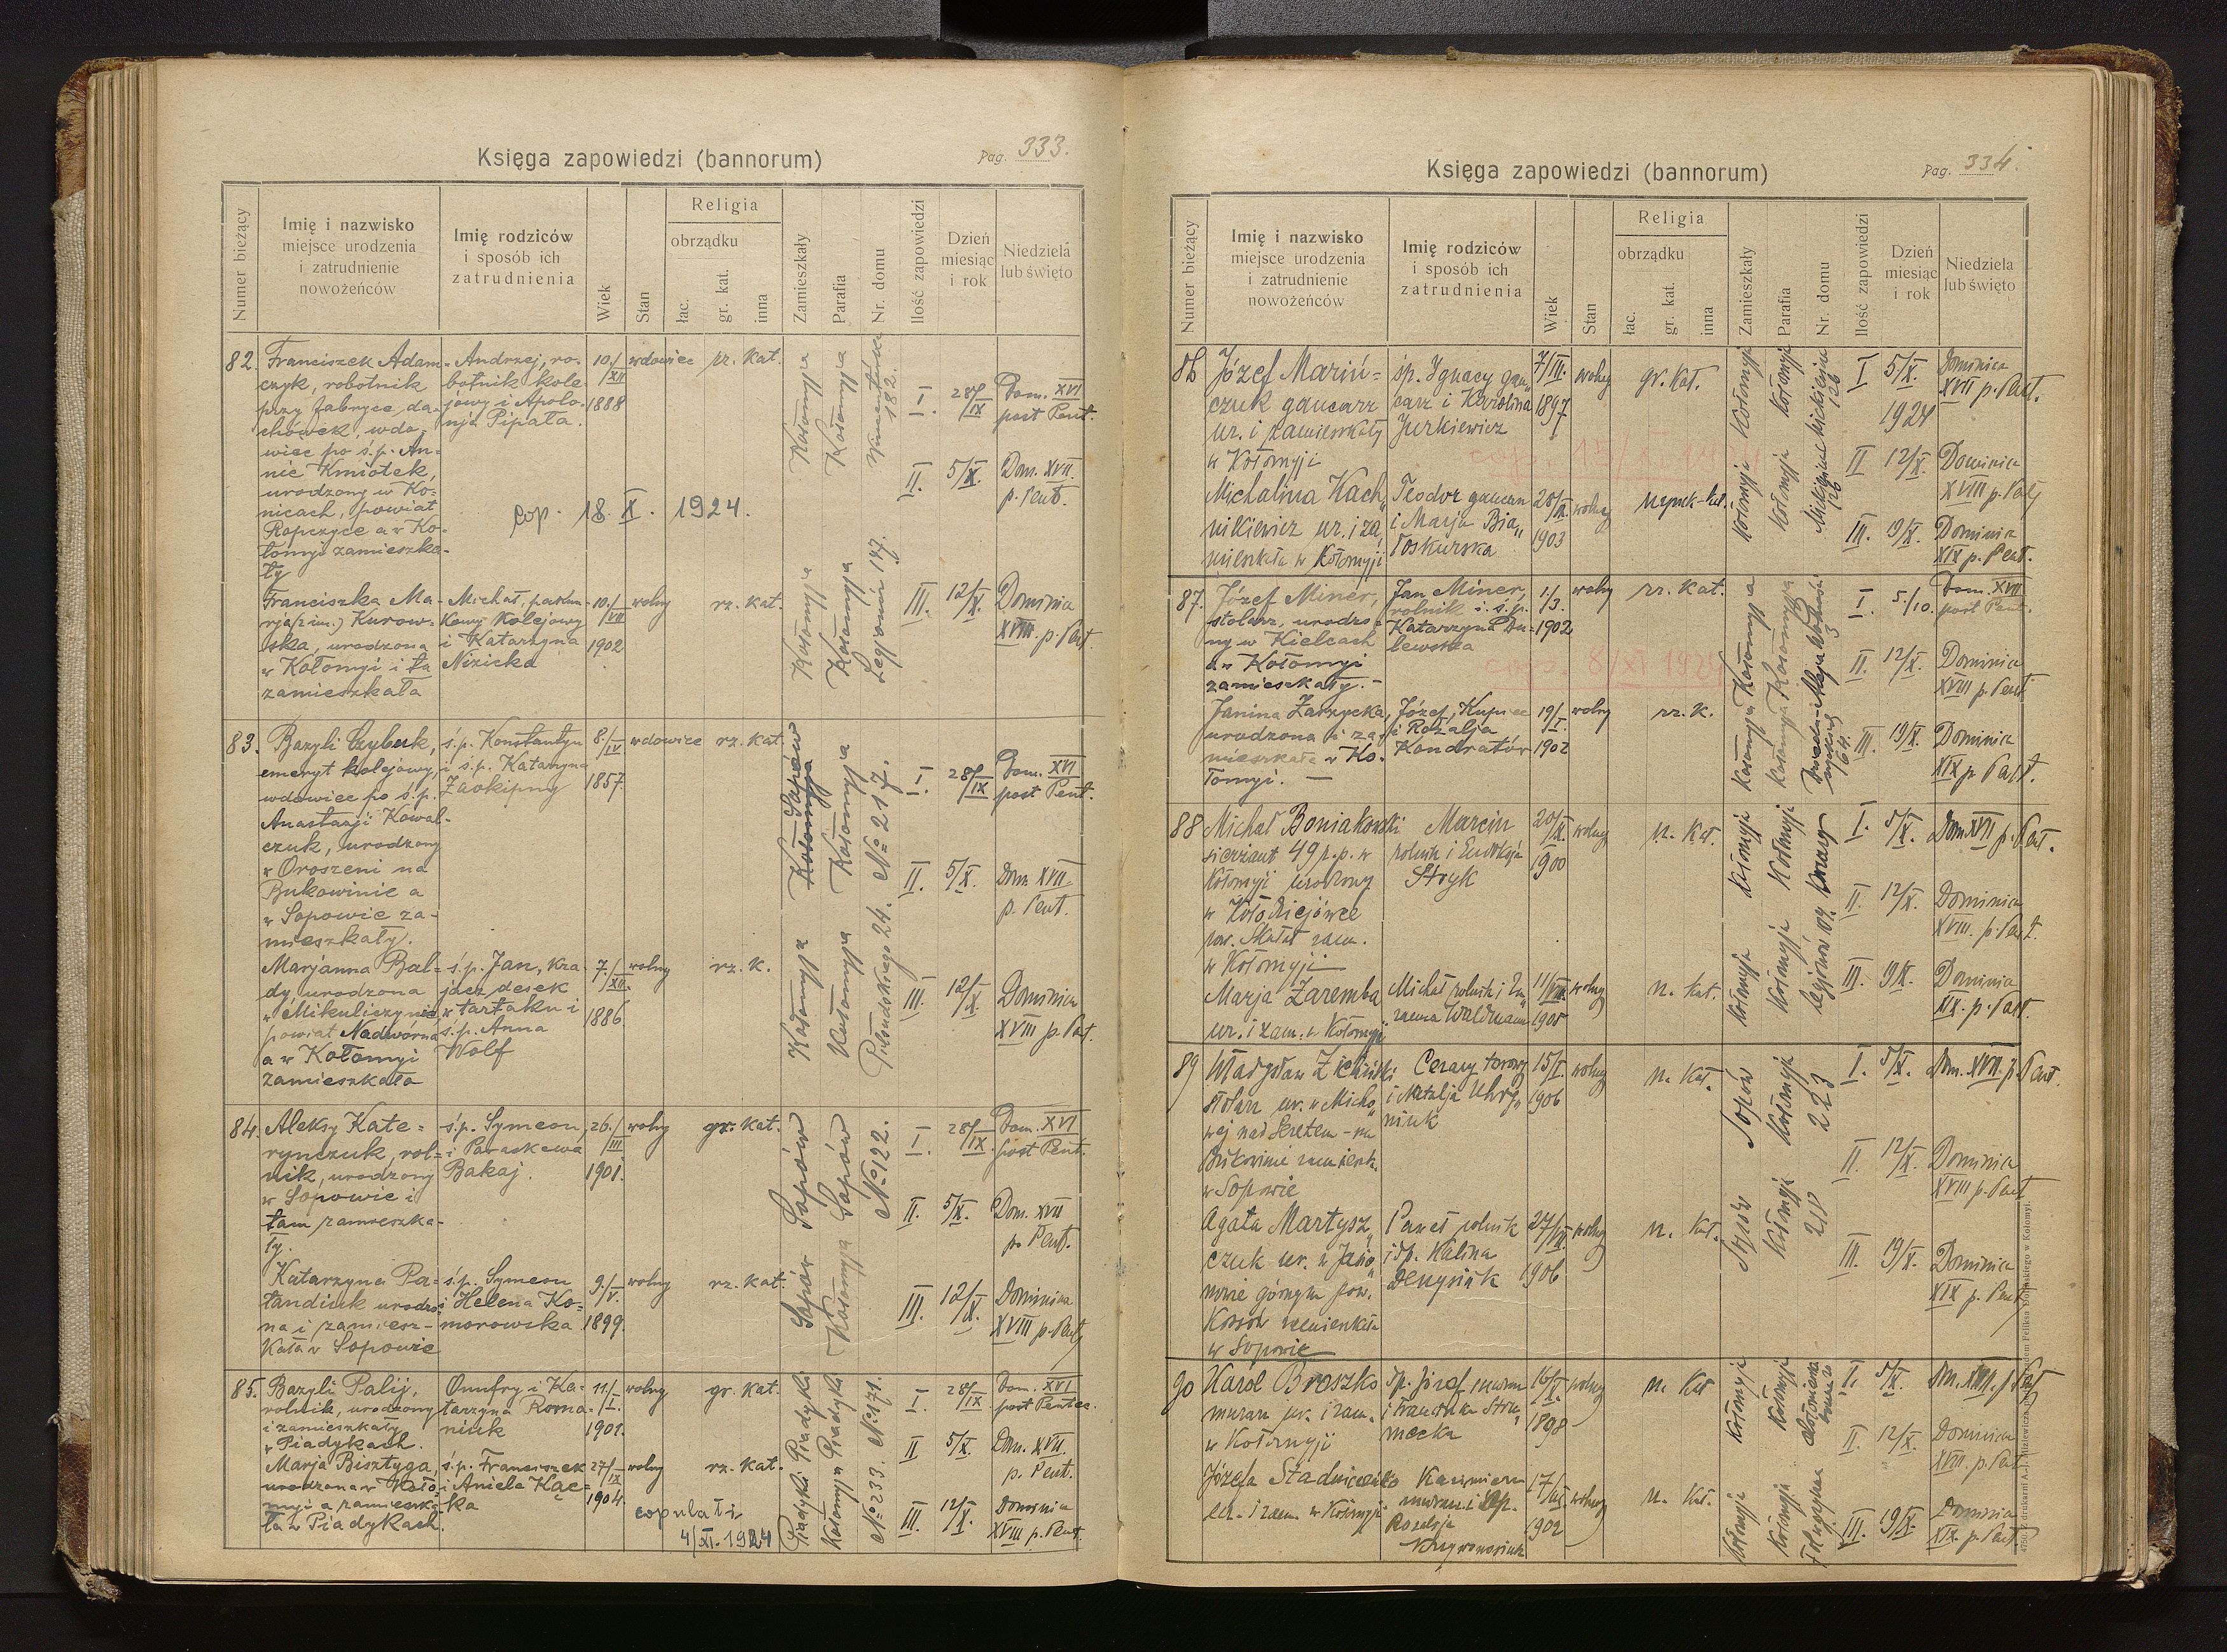 Księga zapowiedzi (bannorum)
Pag. 333.
Numer bieżący
Imię i nazwisko
miejsce urodzenia
i zatrudnienie
nowożeńców
Imię rodziców
i sposób ich
zatrudnienia
Wiek
Stan
Religia
obrządku
łac.
gr. kat.
inna
Zamieszkały
Parafia
Nr. domu
Ilość zapowiedzi
Dzień
miesiąc
i rok
Niedziela
lub święto
82.
Franciszek Adam-
czyk, robotnik
przy fabryce da-
chówek, wdo-
wiec po ś.p. An-
nie Kmiotek,
urodzony w Ko-
nicach, powiat
Ropczyce a w Ko-
łomyi zamieszka-
ły
Andrzej, ro-
botnik kole-
jowy i Apolo-
nja Pipała.
10./XII
1888
wdowiec
rz. kat.
Kołomyja
Kołomyja
182.
I.
28/IX
Dom. XVI
post Pent.
II.
5/X.
Dom. XVII.
p. Pent.
cop. 18. X. 1924.
Franciszka Ma-
rja (2 im.) Kurow-
ska, urodzona
w Kołomyi i tu
zamieszkała
Michał,
kolejowy
i Katarzyna
Nizicka
10./VII
1902
wolny
rz. kat.
Kołomyja
Kołomyja
Legjonów 147.
III.
12/X.
Dominica
XVIII. p. Pent.
83.
Bazyli Czybuk,
emeryt kolejowy,
wdowiec po ś.p.
Anastazji Kowal-
czuk, urodzony
w Oroszeni na
Bukowinie a
w Sopowie za-
mieszkały.
ś.p. Konstantyn
i ś.p. Katarzyna
Zaokipny
8./IV
1857.
wdowiec
rz. kat.
Kołomyja Sopów
Kołomyja
No 217.
I.
28/IX
Dom. XVI
post Pent.
II.
5/X.
Dom. XVII.
p. Pent.
Marjanna Bal-
dy, urodzona
w Mikuliczynie
powiat Nadwórna
a w Kołomyi
zamieszkała
ś.p. Jan, kra
jacz desek
w tartaku i
ś.p. Anna
Wolf
7./XII.
1886
wolny
rz. k.
Kołomyja
Kołomyja
Piłsudskiego 24.
III.
12/X.
Dominica
XVIII p. Pent.
84.
Aleksy Kate-
rynczuk, rol-
nik, urodzony
w Sopowie i
tam zamieszka-
ły.
ś.p. Symeon,
i Paraskewa
Bakaj.
26./III
1901.
wolny
gr. kat.
Sopów
Sopów
No 122.
I.
28/IX
Dom. XVI
post Pent.
II.
5/X.
Dom. XVII
p. Pent.
Katarzyna Pa-
łandiuk urodzo-
na i zamiesz-
kała w Sopowie
ś.p. Symeon
i Helena Ko-
morowska
9./V.
1899.
wolny
rz. kat.
Sopów
Kołomyja
III.
12/X.
Dominica
XVIII p. Pent.
85.
Bazyli Palij,
rolnik, urodzony
i zamieszkały
w Piadykach.
Onufry i Ka-
tarzyna Roma-
niuk
11./I.
1901.
wolny
gr. kat.
Piadyki
Piadyki
No 171.
I.
28/IX
Dom. XVI
post Pentec.
II
5/X.
Dom. XVII.
p. Pent.
Marja Bisztyga,
urodzona w Koło-
myi a zamieszka-
ła w Piadykach.
ś.p. Franciszek
i Aniela Kąc-
ka
27/IX
1904.
wolny
rz. kat.
Piadyki
Kołomyja
No 233.
III.
12/X.
Dominica
XVIII p. Pent.
copulati
4/XI. 1924
Księga zapowiedzi (bannorum)
Pag. 334.
Numer bieżący
Imię i nazwisko
miejsce urodzenia
i zatrudnienie
nowożeńców
Imię rodziców
i sposób ich
zatrudnienia
Wiek
Stan
Religia
obrządku
łac.
gr. kat.
inna
Zamieszkały
Parafia
Nr. domu
Ilość zapowiedzi
Dzień
miesiąc
i rok
Niedziela
lub święto
86
Józef Mariń-
czuk gancarz
ur. i zamieszkały
w Kołomyji
śp. Ignacy gan-
carz i Karolina
Jurkiewicz
7/III.
1897
wolny
gr. kat.
Kołomyja
Kołomyja
Mickiewicza
126
I
5/X.
1924
Dominica
XVII p. Pent.
II
12/X.
Dominica
XVIII p. Pent.
Michalina Kach-
nikiewicz ur. i za-
mieszkała w Kołomyji
Teodor gancarz
i Marja Bia-
łoskurska
1903
wolny
rzymk-kat.
Kołomyja
Kołomyja
Mickiewicza
126
III.
19/X.
Dominica
XIX p. Pent.
87.
Józef Miner,
stolarz, urodzo-
ny w Kielcach
a w Kołomyi
zamieszkały. -
Jan Miner,
rolnik i ś.p.
Katarzyna Du-
lewska
1/3.
1902
wolny
rz. kat.
Kołomyja
Kołomyja
I.
5/10.
Dom. XVII
post Pent.
II.
12/X.
Dominica
XVIII p. Pent.
cop. 8/XI 1924
Janina Zarzycka,
urodzona i za-
mieszkała w Ko-
łomyi. —
Józef, kupiec
i Rozalja
Kondratów
19/I.
1902
wolny
rz. k.
Kołomyja
Kołomyja
64.
III.
19/X.
Dominica
XIX p. Pent.
88
Michał Boniakowski
sierżant 49 p.p. w
Kołomyji urodzony
w Kołodziejówce
pow. Skałat zam.
w Kołomyji
Marcin
rolnik i Eudokja
Stryk
20/X
1900
wolny
rz. kat.
Kołomyja
Kołomyja
I.
5/X.
Dom XVII p. Pent.
II.
12/X.
Dominica
XVIII. p. Pent.
Marja Zaremba
ur. i zam. w Kołomyji
Michał rolnik i
Waldman
11/VIII
1905
wolny
rz. kat.
Kołomyja
Kołomyja
Legjonów 109
III.
19/X.
Dominica
XIX. p. Pent.
89
Władysław Zieliński
stolarz ur. w Micho-
wej nad Seretem - na
Bukowinie zamieszk.
w Sopowie
Cezary torowy
i Natalja Uhry-
niuk
15/I.
1906
wolny
rz. kat.
Sopów
Kołomyja
223
I.
5/X.
Dom. XVII. p. Pent.
II.
12/X.
Dominica
XVIII p. Pent
Agata Martysz-
czuk ur. w Jasio-
nowie górnym pow.
Kosów zamieszkała
w Sopowie
Paweł rolnik
i śp. Kalina
Denysiuk
1906
wolny
rz. kat.
Sopów
Kołomyja
III.
19/X.
Dominica
XIX p. Pent
90
Karol Broszko
murarz ur. i zam.
w Kołomyji
śp. Józef murarz
i Franciszka Stru-
mecka
16/X.
1898
wolny
rz. kat
Kołomyja
Kołomyja
I.
5/X.
II.
12/X.
Dominica
XVIII. p. Pent
Józefa Stadniczenko
ur. i zam. w Kołomyji
Kazimierz
murarz i śp.
Rozalja
1902
wolny
rz. kat.
Kołomyja
Kołomyja
III.
19/X.
Dominica
XIX. p. Pent